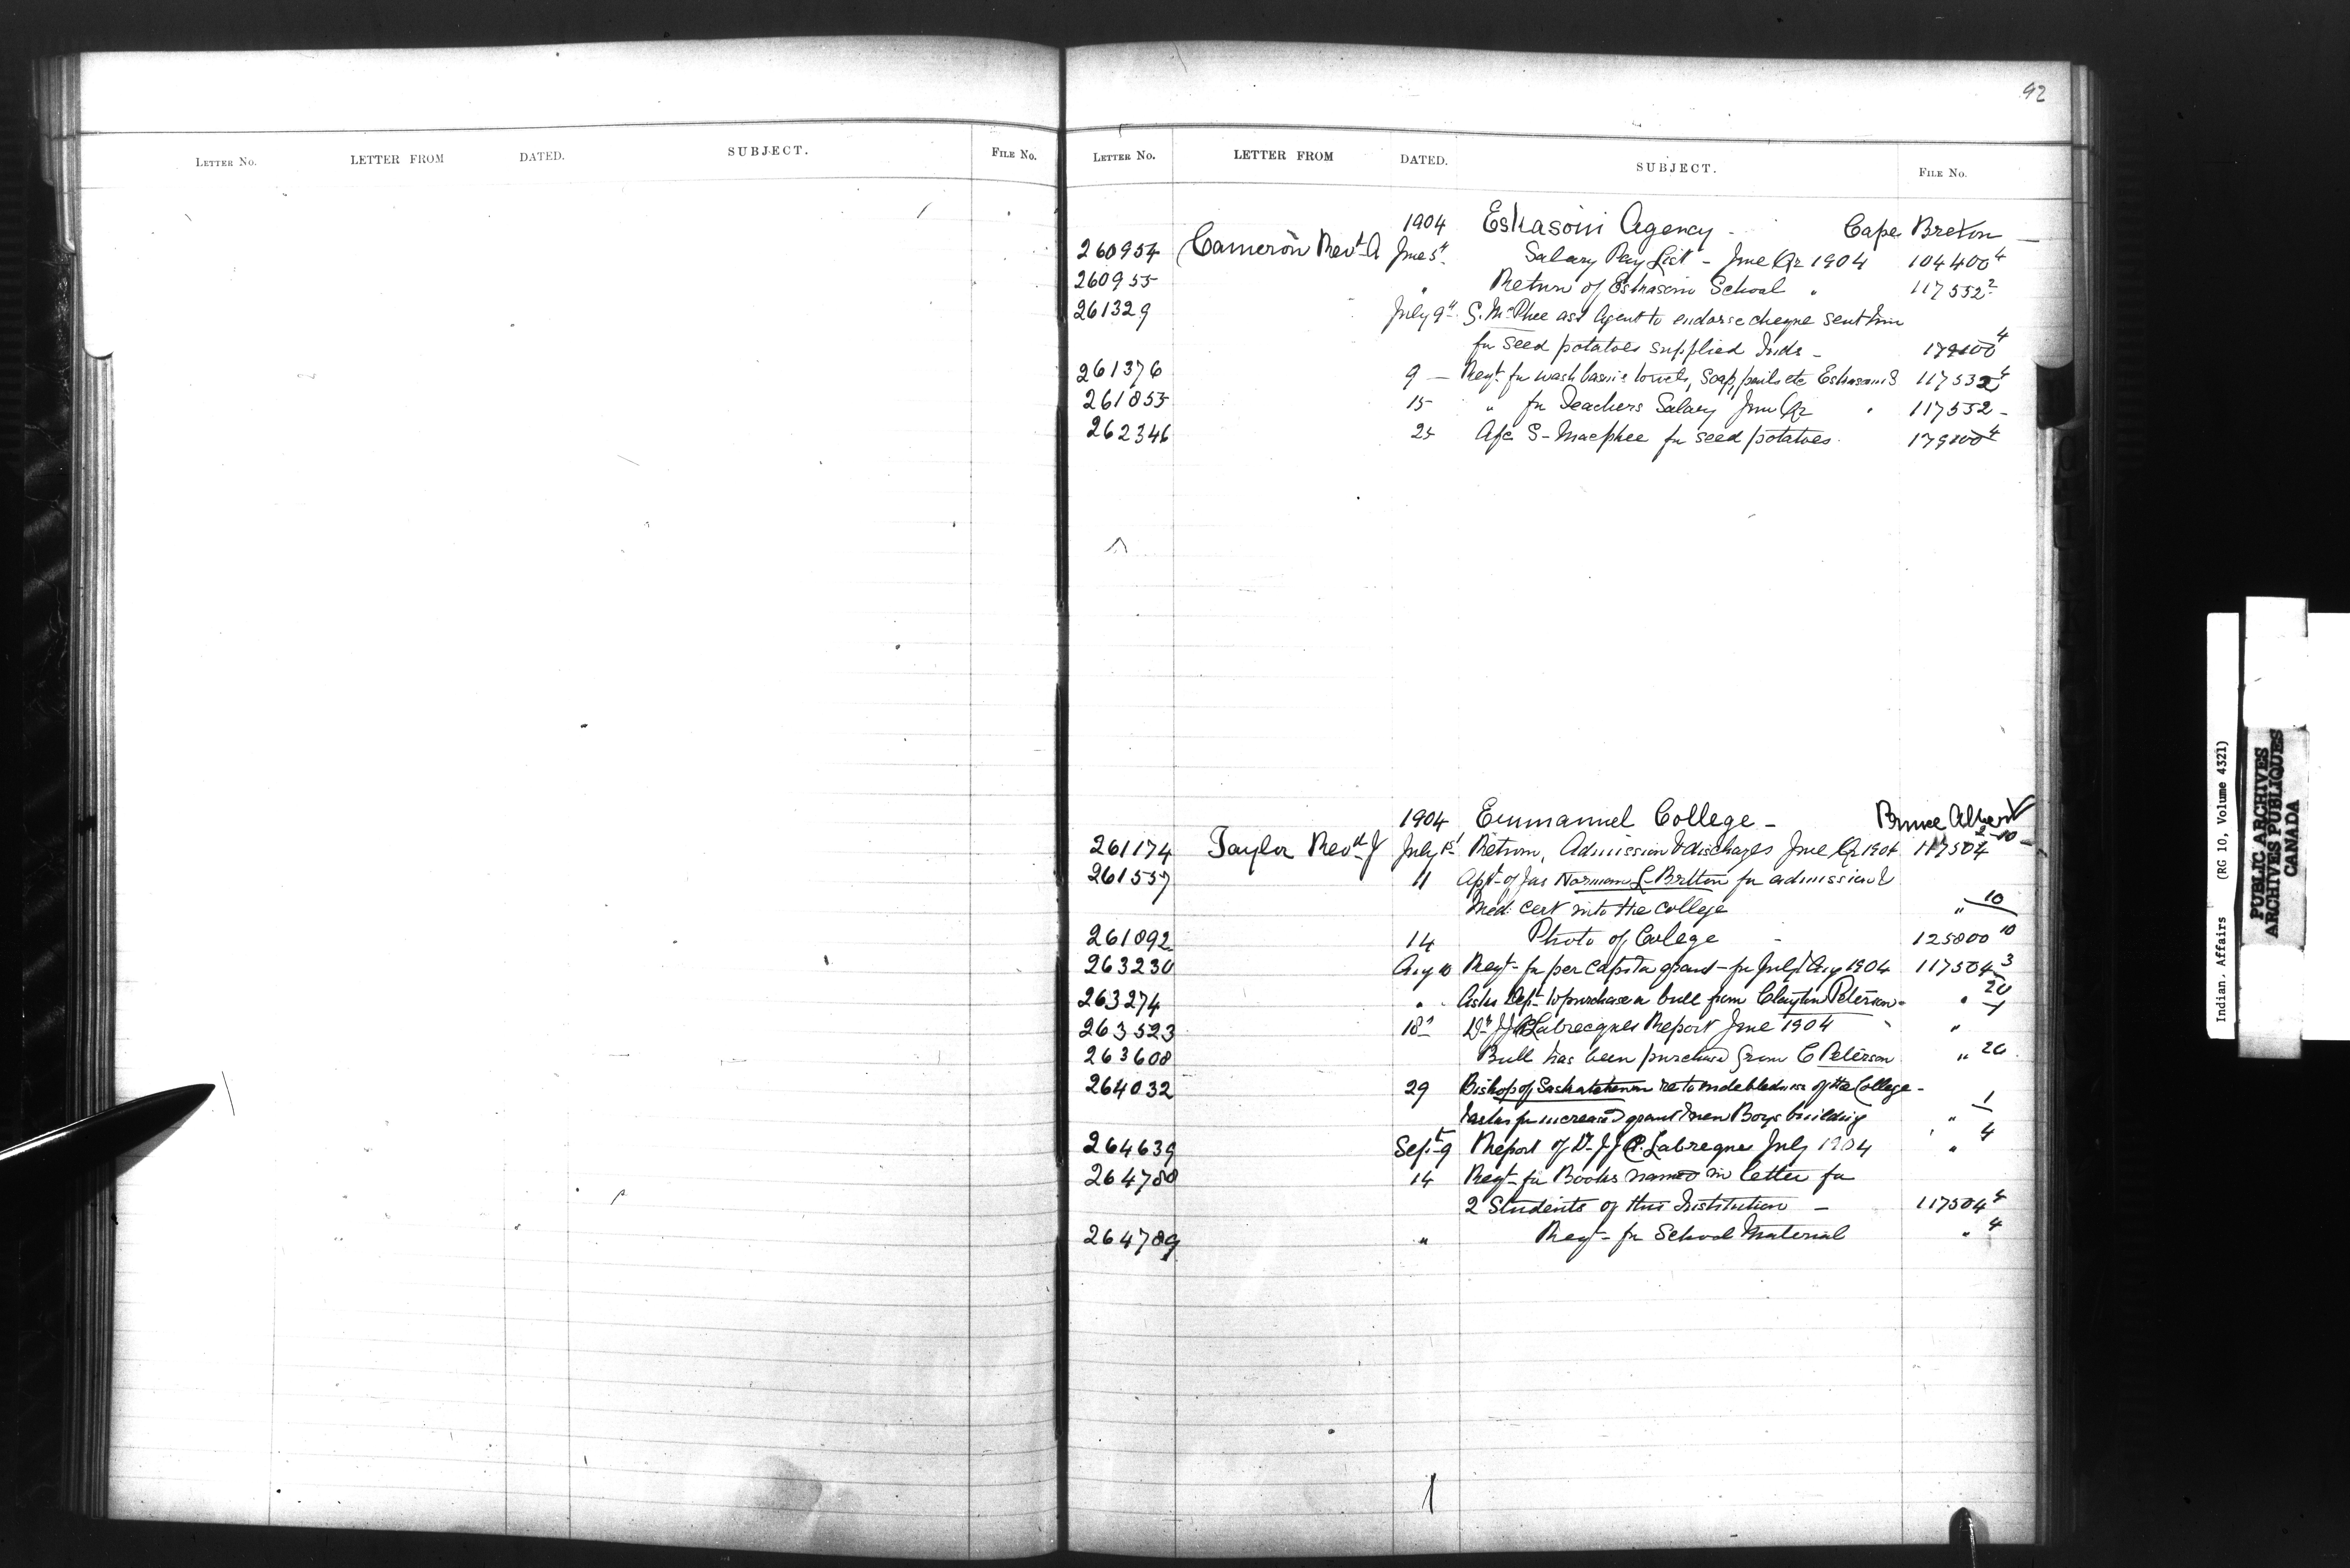 92
LETTER No. LETTER FROM DATED. SUBJECT. FILE No.
LETTER No. LETTER FROM DATED. SUBJECT. FILE No.
1904 Eskasoni Agency - Cape Breton
260954 Cameron Revd A June 5" Salary Pay List - June Qr 1904 104400 4
260955 " Return of Eskasoni School " 117552 2
261329 July 9" S. McPhee ask Agent to endorse cheque sent him
for seed potatoes supplied Inds - 4
261376 9 - Reqt for wash basins towels, soap, pails etc Eskasoni S 117532 4
261853 15 " for Teachers Salary June Qr " 117552 -
262346 25 A/c S - Macphee for seed potatoes 4
1904 Emmanuel College - Prince Albert
261174 Taylor Revd J July 1st Return, Admission & discharges June Qr 1904 117504 2-10
261557 11 Appt of Jas Norman L. Britton for admission &
Med: cert into the College " 10
261892 14 Photo of College - 125800 10
263230 Aug 10 Reqt - for per capita grant - for July & Aug 1904 117504 3
263274 " Asks Dept to purchase a bull from Clayton Peterson - " 20
263523 18" Dr J.J.A. Labrecques Report June 1904 "
263608 Bull has been purchased from C Peterson " 20
264032 29 Bishop of Saskatchewan re to indebtedness of the College -
& asks for increased grant & new Boys building " 1
264639 Sept 9 Report of Dr J J A. Labreques July 1904 " 4
264788 14 Reqt - for Books named in letter for
2 Students of this Institution - 117504 4
264789 " Reqt - for School Material " 4
Indian. Affairs (RG 10, Volume 4321)
PUBLIC ARCHIVES
ARCHIVES PUBLIQUES
CANADA